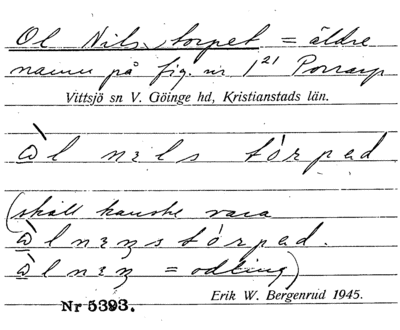 Ol Nils torpet = äldre
namn på fig. nr 1²¹ Porrarp
Vittsjö sn V. Göinge hd, Kristianstads län.
ὼl nɛls tórpad
(skall kanske vara
ὼlnɛnstórpad.
ὼlnɛn = odling)
Nr 5393.
Erik W. Bergenrud 1945.